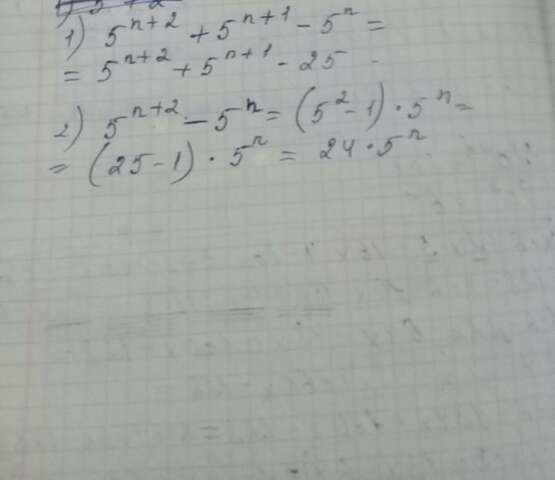 1) 5^{n+2} + 5^{n+1} - 5^n =
= 5^{n+2} + 5^{n+1} - 25
2) 5^{n+2} - 5^n = (5^2 - 1) · 5^n =
= (25 - 1) · 5^n = 24 · 5^n